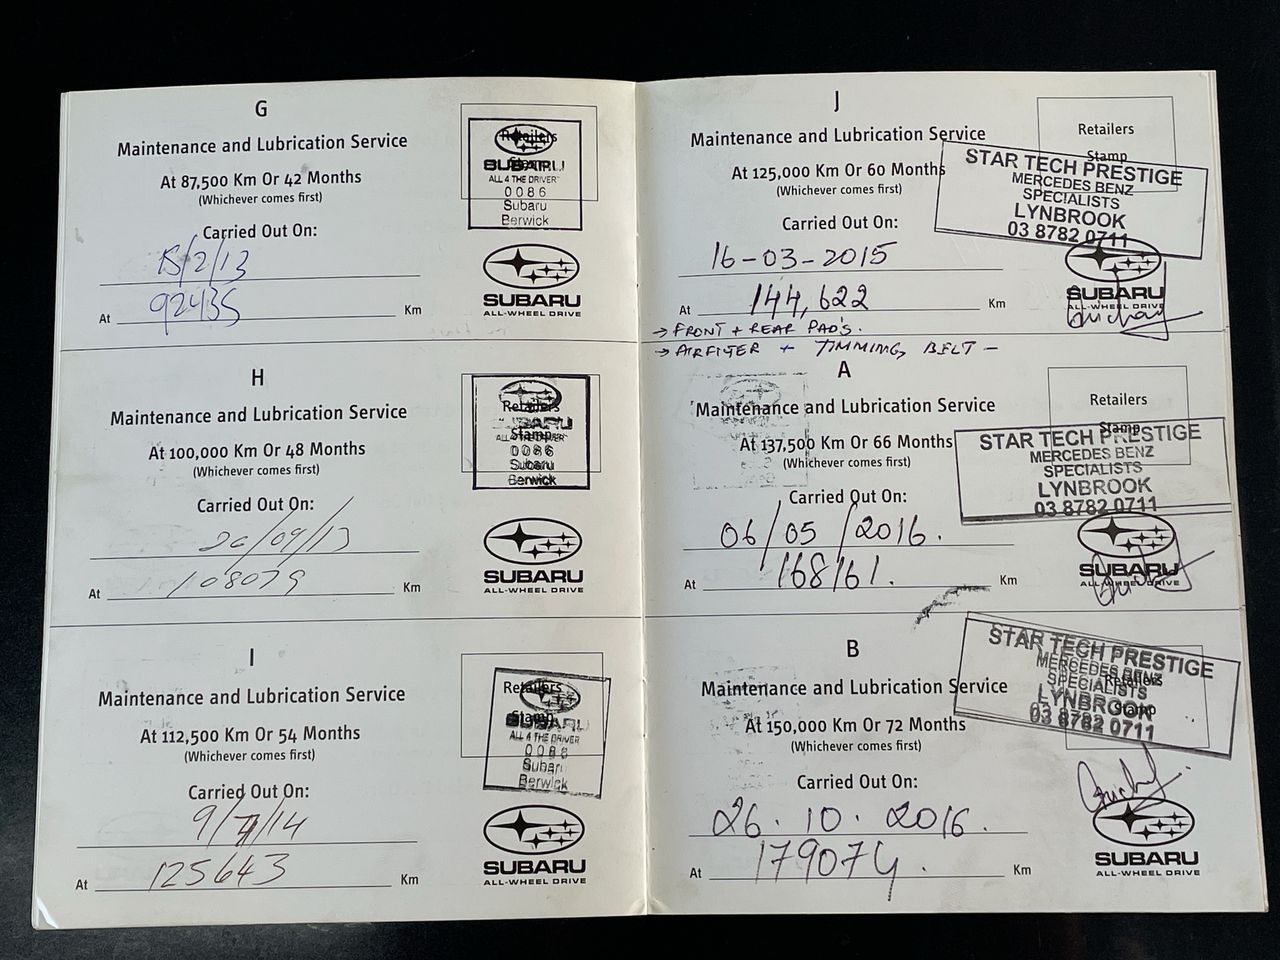 G
Maintenance and Lubrication Service
At 87,500 Km Or 42 Months
(Whichever comes first)
Carried Out On:
15/2/13
At 92435 Km
Retailers
Stamp
SUBARU
ALL 4 THE DRIVER
0086
Subaru
Berwick
SUBARU
ALL-WHEEL DRIVE
H
Maintenance and Lubrication Service
At 100,000 Km Or 48 Months
(Whichever comes first)
Carried Out On:
26/09/13
At 108079 Km
Retailers
SUBARU
Stamp
ALL 4 THE DRIVER
0086
Subaru
Berwick
SUBARU
ALL-WHEEL DRIVE
I
Maintenance and Lubrication Service
At 112,500 Km Or 54 Months
(Whichever comes first)
Carried Out On:
9/4/14
At 125643 Km
Retailers
Stamp
SUBARU
ALL 4 THE DRIVER
0086
Subaru
Berwick
SUBARU
ALL-WHEEL DRIVE
J
Maintenance and Lubrication Service
At 125,000 Km Or 60 Months
(Whichever comes first)
Carried Out On:
16-03-2015
At 144,622 Km
→ FRONT + REAR PAD'S.
→ AIRFILTER + TIMMING BELT -
Retailers
Stamp
STAR TECH PRESTIGE
MERCEDES BENZ
SPECIALISTS
LYNBROOK
03 8782 0711
SUBARU
ALL-WHEEL DRIVE
A
Maintenance and Lubrication Service
At 137,500 Km Or 66 Months
(Whichever comes first)
Carried Out On:
06/05/2016.
At 168161. Km
Retailers
Stamp
STAR TECH PRESTIGE
MERCEDES BENZ
SPECIALISTS
LYNBROOK
03 8782 0711
SUBARU
ALL-WHEEL DRIVE
B
Maintenance and Lubrication Service
At 150,000 Km Or 72 Months
(Whichever comes first)
Carried Out On:
26.10.2016.
At 179074. Km
STAR TECH PRESTIGE
MERCEDES BENZ
Retailers
SPECIALISTS
LYNBROOK
Stamp
03 8782 0711
SUBARU
ALL-WHEEL DRIVE